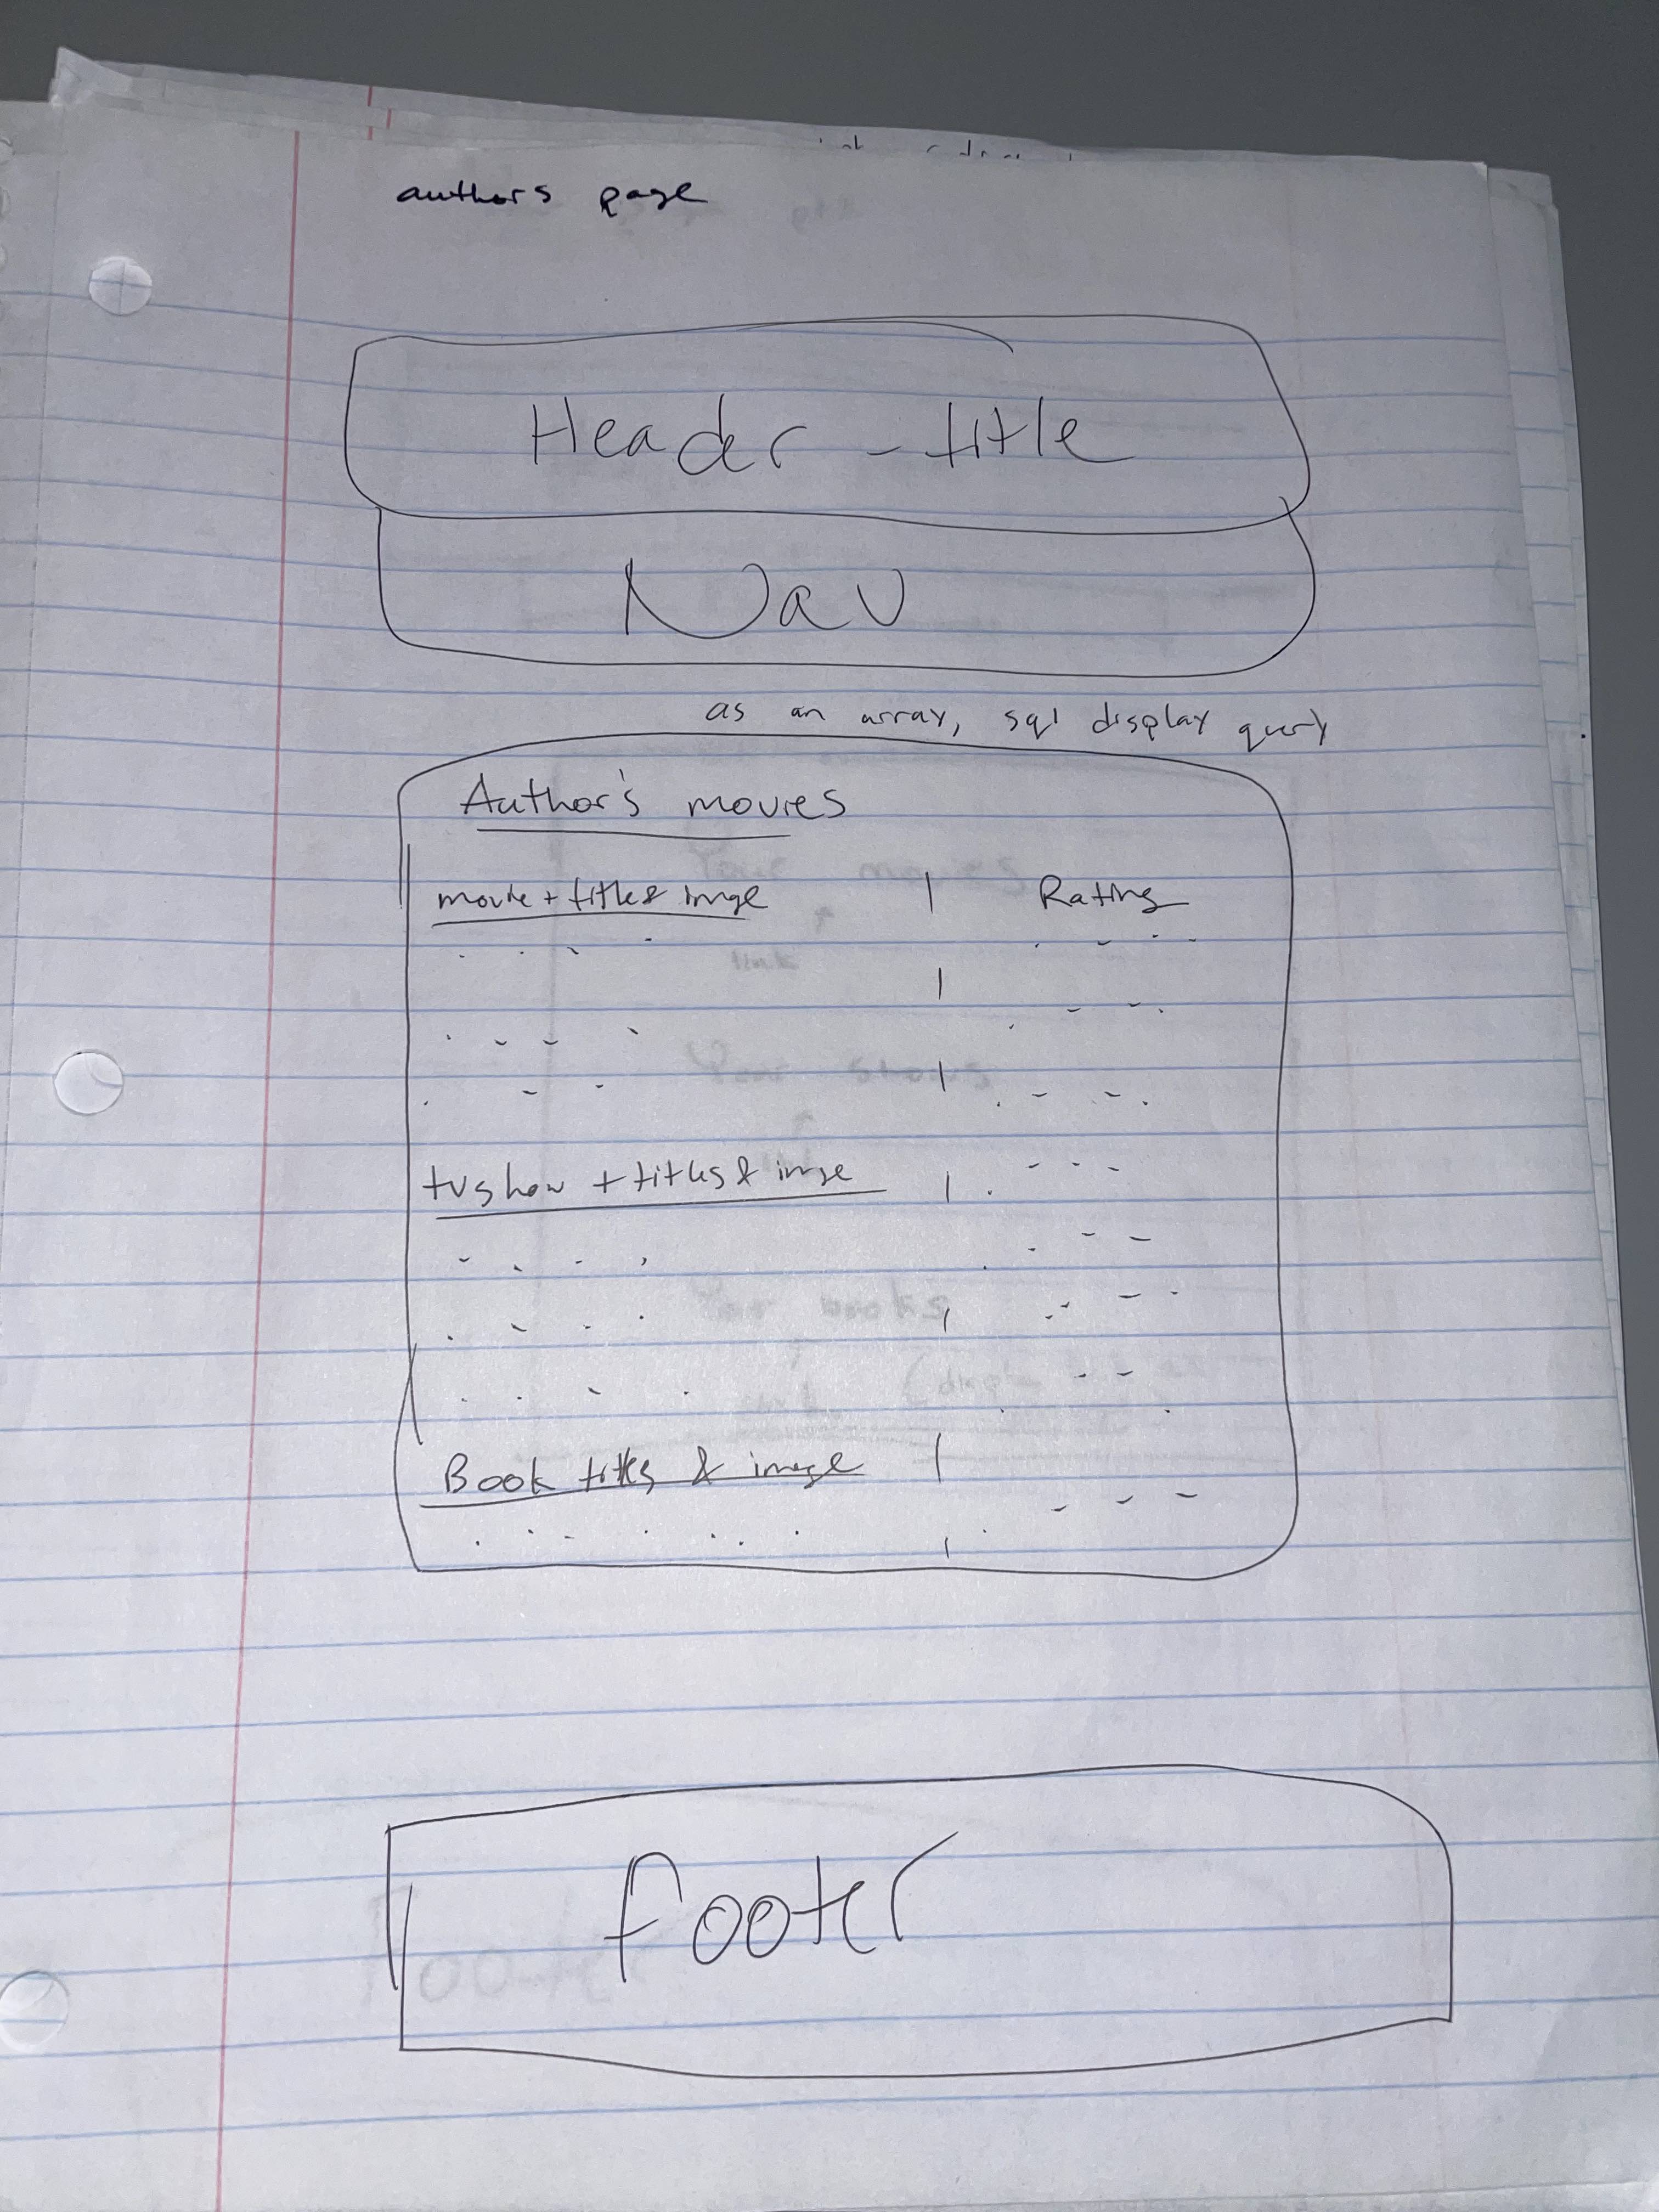 authors page
Header - title
Nav
as an array, sql display query
Author's movies
movie + titles & imge | Rating
tvshow + titles & imge |
Book titles & image |
footer